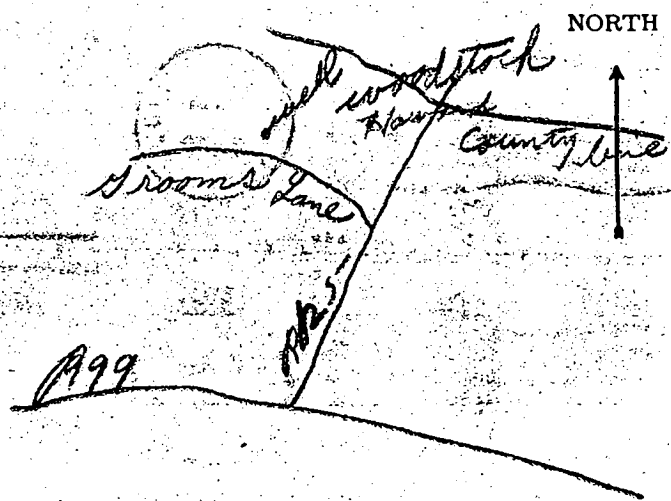 NORTH
well
woodstock
Howard
County line
Grooms Lane
R125
R99